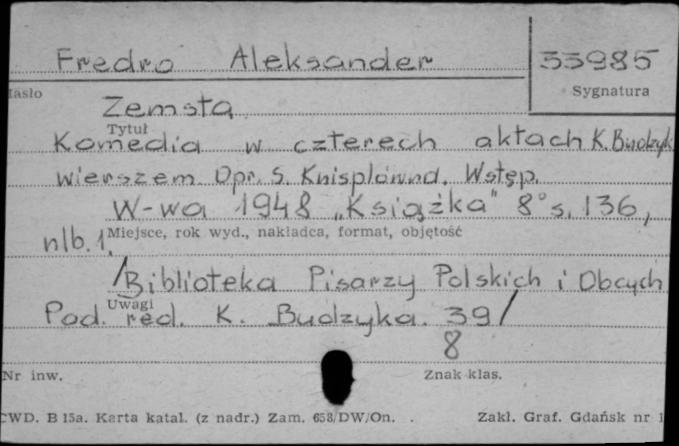 Fredro Aleksander 33985
Hasło Sygnatura
Zemsta
Tytuł
Komedia w czterech aktach K. Budzyk
wierszem Opr. S. Knisplówna. Wstęp.
W-wa 1948 „Książka" 8° s. 136,
nlb. 1. Miejsce, rok wyd., nakładca, format, objętość
/Biblioteka Pisarzy Polskich i Obcych
Uwagi
Pod. red. K. Budzyka. 39/
8
Nr inw. Znak klas.
CWD. B 15a. Karta katal. (z nadr.) Zam. 658/DW/On. . Zakł. Graf. Gdańsk nr 1